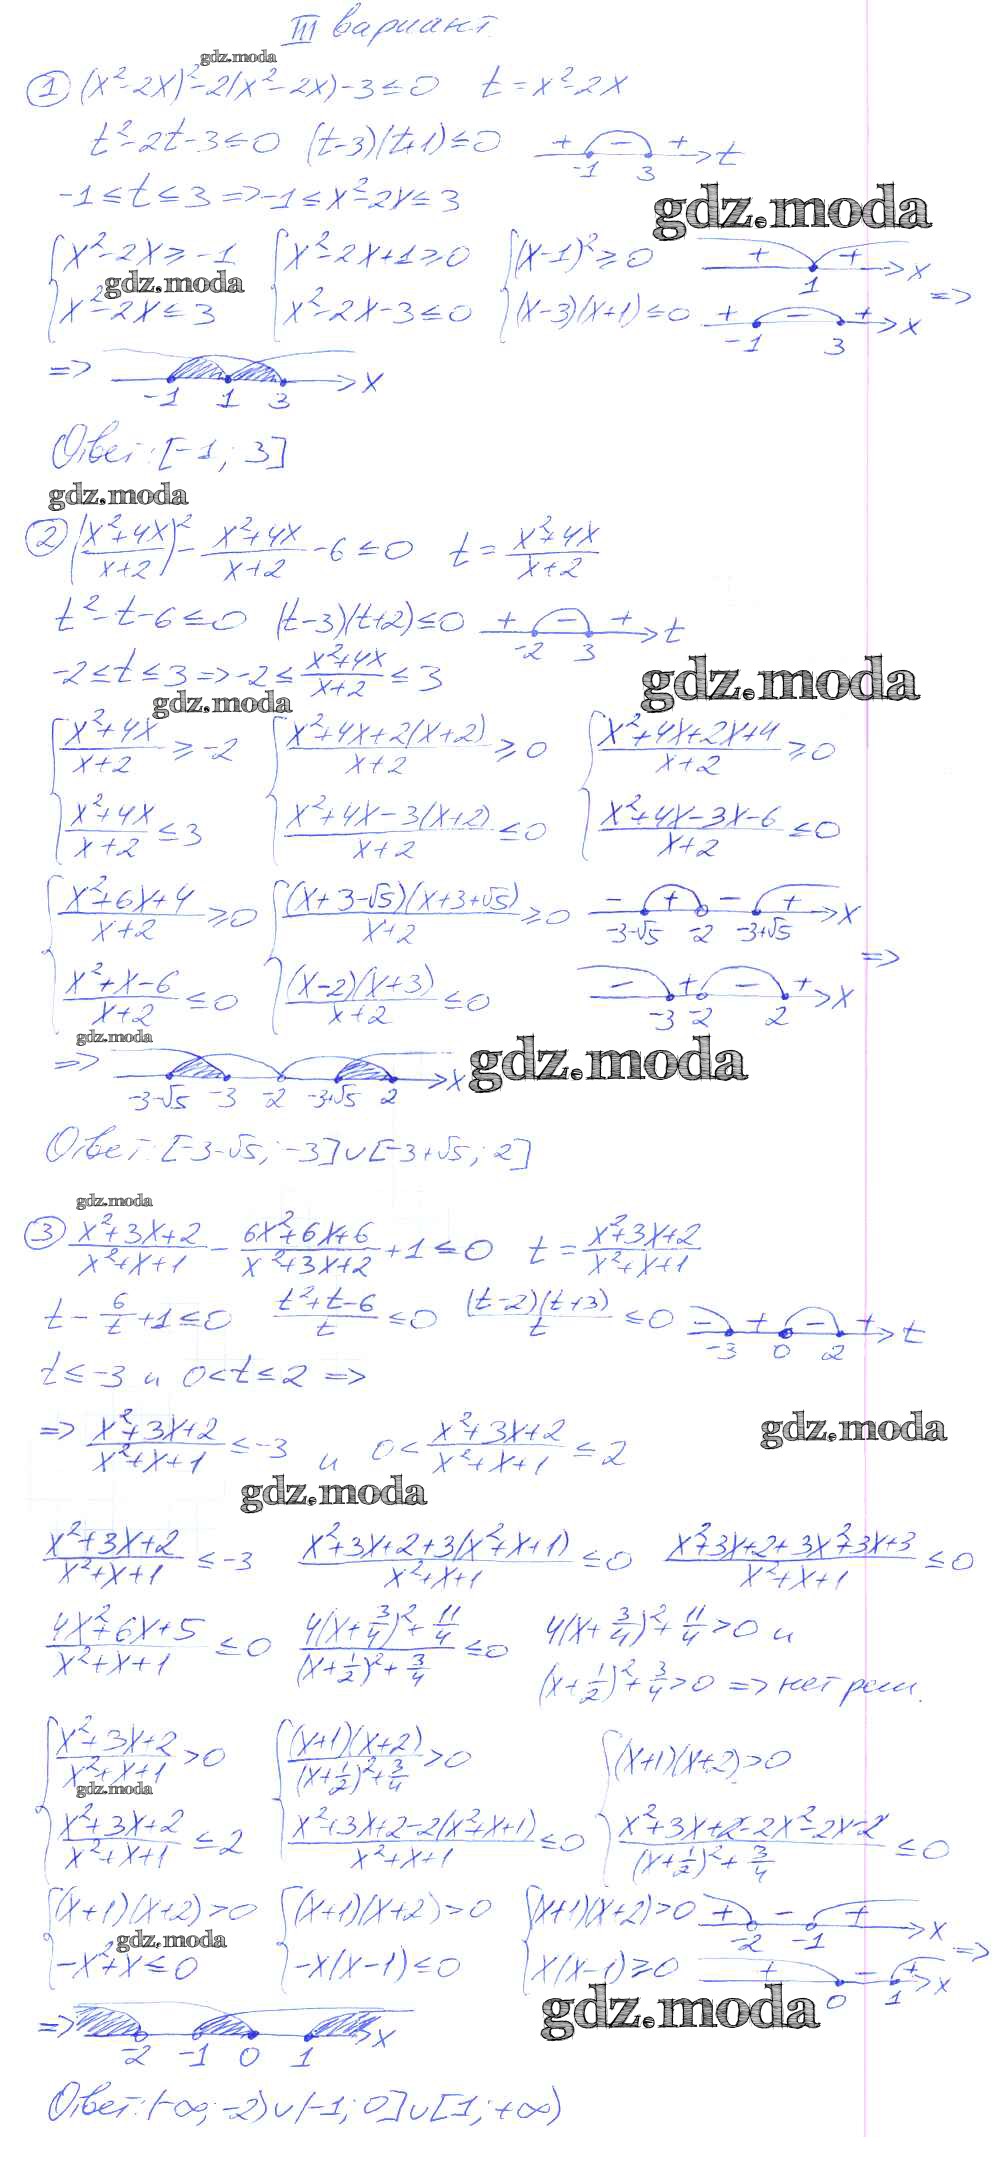 III вариант.
gdz.moda
① (x²-2x)²-2(x²-2x)-3≤0 t=x²-2x
t²-2t-3≤0 (t-3)(t+1)≤0 + - + t
-1 3
-1≤t≤3=>-1≤x²-2x≤3
gdz.moda
{x²-2x≥-1 {x²-2x+1≥0 {(x-1)²≥0 + + x
1
gdz.moda =>
{x²-2x≤3 {x²-2x-3≤0 {(x-3)(x+1)≤0 + - + x
-1 3
=> x
-1 1 3
Ответ: [-1; 3]
gdz.moda
② ((x²+4x)/(x+2))² - (x²+4x)/(x+2) - 6≤0 t = (x²+4x)/(x+2)
t²-t-6≤0 (t-3)(t+2)≤0 + - + t
-2 3
-2≤t≤3=>-2≤(x²+4x)/(x+2)≤3
gdz.moda
gdz.moda
{(x²+4x)/(x+2) ≥ -2 {(x²+4x+2(x+2))/(x+2) ≥0 {(x²+4x+2x+4)/(x+2) ≥0
{(x²+4x)/(x+2) ≤3 {(x²+4x-3(x+2))/(x+2) ≤0 {(x²+4x-3x-6)/(x+2) ≤0
{(x²+6x+4)/(x+2) ≥0 {((x+3-√5)(x+3+√5))/(x+2) ≥0 - + - + x
-3-√5 -2 -3+√5
=>
{(x²+x-6)/(x+2) ≤0 {((x-2)(x+3))/(x+2) ≤0 - + - + x
-3 -2 2
gdz.moda
=> x
gdz.moda
-3-√5 -3 -2 -3+√5 2
Ответ: [-3-√5; -3]∪[-3+√5; 2]
gdz.moda
③ (x²+3x+2)/(x²+x+1) - (6x²+6x+6)/(x²+3x+2) +1≤0 t = (x²+3x+2)/(x²+x+1)
t - 6/t +1≤0 (t²+t-6)/t ≤0 ((t-2)(t+3))/t ≤0 - + - + t
-3 0 2
t≤-3 и 0<t≤2 =>
=> (x²+3x+2)/(x²+x+1) ≤-3 и 0< (x²+3x+2)/(x²+x+1) ≤2
gdz.moda
gdz.moda
(x²+3x+2)/(x²+x+1) ≤-3 (x²+3x+2+3(x²+x+1))/(x²+x+1) ≤0 (x²+3x+2+3x²+3x+3)/(x²+x+1) ≤0
(4x²+6x+5)/(x²+x+1) ≤0 (4(x+3/4)²+11/4)/((x+1/2)²+3/4) ≤0 4(x+3/4)²+11/4>0 и
(x+1/2)²+3/4>0 => нет реш.
{(x²+3x+2)/(x²+x+1) >0 {((x+1)(x+2))/((x+1/2)²+3/4) >0 {(x+1)(x+2)>0
gdz.moda
{(x²+3x+2)/(x²+x+1) ≤2 {(x²+3x+2-2(x²+x+1))/(x²+x+1) ≤0 {(x²+3x+2-2x²-2x-2)/((x+1/2)²+3/4) ≤0
{(x+1)(x+2)>0 {(x+1)(x+2)>0 {(x+1)(x+2)>0 + - + x
-2 -1
gdz.moda =>
{-x²+x≤0 {-x(x-1)≤0 {x(x-1)≥0 + - + x
0 1
gdz.moda
=> x
-2 -1 0 1
Ответ: (-∞; -2)∪(-1; 0]∪[1; +∞)